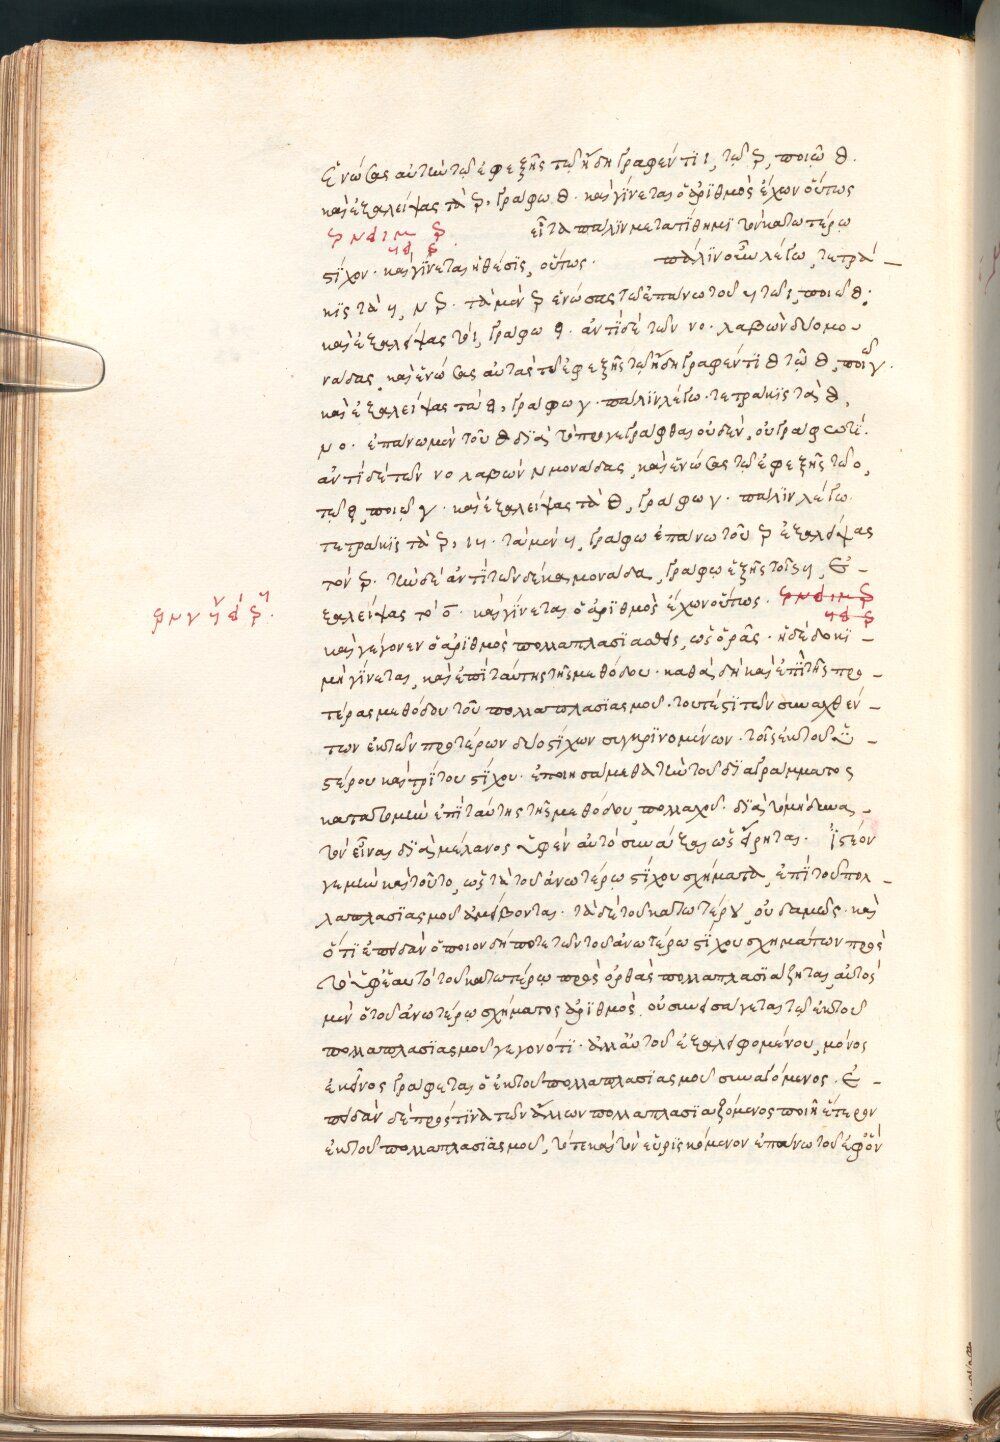 ἑνώσας αὐτὴν τῷ ἐφεξῆς τῷ ἤδη γραφέντι ι, τῷ ϛ, ποιῶ θ.
καὶ ἐξαλείψας τὰ ϛ, γράφω θ. καὶ γίνεται ὁ ἀριθμὸς ἔχων οὕτως
εἶτα πάλιν μετατίθημι τὸν κατωτέρω
στίχον. καὶ γίνεται ἡ θέσις, οὕτως. πάλιν οὖν λέγω, τετρά-
κις τὰ
καὶ ἐξαλείψας τὸ ι, γράφω θ. ἀντὶ δὲ τῶν νο. λαβὼν δύο μο-
νάδας, καὶ ἑνώσας αὐτὰς τῷ ἐφεξῆς τῷ ἤδη γραφέντι θ τῷ θ, ποιῶ γ.
καὶ ἐξαλείψας τὰ θ, γράφω γ. πάλιν λέγω. τετράκις τὰ θ,
νο. ἐπάνω μὲν τοῦ θ διὰ τὸ προγεγράφθαι οὐδὲν, οὐ γράφω τι.
ἀντὶ δὲ τῶν νο λαβὼν ν μονάδας, καὶ ἑνώσας τῷ ἐφεξῆς τῷ ο,
τῷ θ, ποιῶ γ. καὶ ἐξαλείψας τὰ θ, γράφω γ. πάλιν λέγω.
τετράκις τὰ ϛ, ιη. τὰ μὲν η, γράφω ἐπάνω τοῦ ϛ ἐξαλείψας
τὸν ϛ. τὴν δὲ ἀντὶ τῶν δέκα μονάδα, γράφω ἑξῆς τοῖς η, ἐ-
ξαλείψας τὸ ο. καὶ γίνεται ὁ ἀριθμὸς ἔχων οὕτως.
καὶ γέγονεν ὁ ἀριθμὸς πολλαπλασιασθεὶς, ὡς ὁρᾷς. ἡ δὲ δοκι-
μὴ γίνεται, καὶ ἐπὶ ταύτης τῆς μεθόδου. καθὰ δὴ καὶ ἐπὶ τῆς προ-
τέρας μεθόδου τοῦ πολλαπλασιασμοῦ. τουτέστι τῶν συναχθέν-
των ἐκ τῶν προτέρων δύο στίχων συγκρινομένων. τοῖς ἐκ τοῦ ὑ-
στέρου καὶ τρίτου στίχου. ἐποιησάμεθα τὴν τοῦ διαγράμματος
κατατομὴν ἐπὶ ταύτης τῆς μεθόδου, πολλαχοῦ. διὰ τὸ μὴ δύνας-
τὸν εἶναι διὰ μέλανος ὑφὲν αὐτὸ συνάξαι ὡς εἴρηται. ἰστέον
γε μὴν καὶ τοῦτο, ὡς τὰ τοῦ ἀνωτέρω στίχου σχήματα, ἐπὶ τοῦ πολ-
λαπλασιασμοῦ ἀμείβονται. τὰ δὲ τοῦ κατωτέρου, οὐδαμῶς. καὶ
ὅτι ἐπειδὰν ὁποιονδήποτε τῶν τοῦ ἀνωτέρω στίχου σχημάτων πρὸς
τὸ ὑφ' ἑαυτὸ τοῦ κατωτέρω πρὸς ὀρθὰς πολλαπλασιάζηται, αὐτὸς
μὲν ὁ τοῦ ἀνωτέρω σχήματος ἀριθμὸς, οὐ συνεισάγεται τῷ ἐκ τοῦ
πολλαπλασιασμοῦ γεγονότι. ἀλλ' αὐτοῦ ἐξαλειφομένου, μόνος
ἐκεῖνος γράφεται ὁ ἐκ τοῦ πολλαπλασιασμοῦ συναγόμενος. ἐ-
πειδὰν δὲ πρός τινα τῶν ἄλλων πολλαπλασιαζόμενος ποιῇ ἕτερον
ἐκ τοῦ πολλαπλασιασμοῦ, τότε καὶ τὸν εὑρισκόμενον ἐπάνω τοῦ ἐφ' ὃν